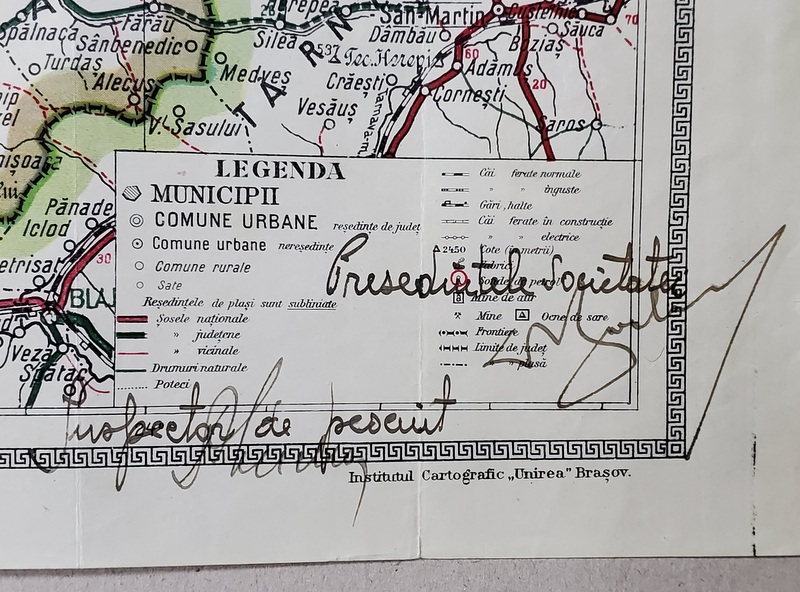 Fărău
Cerepea
San-Martin
70
Sânbenedic
Silea
Dâmbău
Șăuca
537
Turdaș
Medveș
60
Adămuș
Baziaș
Alecuș
Crăești
20
Cornești
Vesăuș
V. Sasului
Saros
TÂRN
Pănade
Iclod
30
BLAJ
Veza
LEGENDA
MUNICIPII
COMUNE URBANE reședințe de județ
Comune urbane nereședințe
Comune rurale
Sate
Reședințele de plași sunt subliniate
Șosele naționale
" județene
" vicinale
Drumuri naturale
Poteci
Căi ferate normale
" " înguste
Gări, halte
Căi ferate în construcție
" " electrice
2450 Cote (în metrii)
Fabrici
Sonde de petrol
Mine de aur
Mine Ocne de sare
Frontiere
Limite de județ
" " plasă
Președintele Societatei
Inspector de pescuit
Institutul Cartografic „Unirea" Brașov.